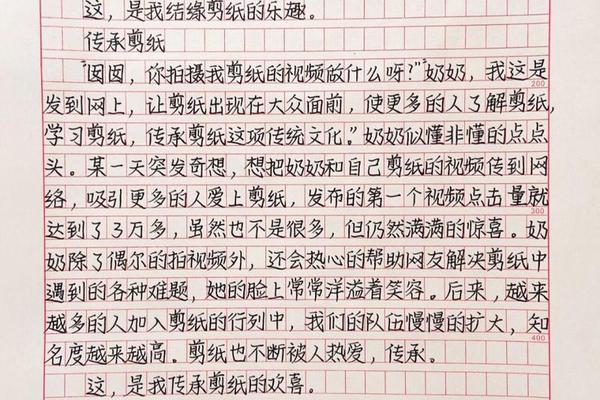 这，是我结缘剪纸的乐趣。
传承剪纸
“囡囡，你拍摄我剪纸的视频做什么呀？”奶奶，我这是
200
发到网上，让剪纸出现在大众面前，使更多的人了解剪纸，
学习剪纸，传承剪纸这项传统文化。”奶奶似懂非懂的点点
头。某一天突发奇想，想把奶奶和自己剪纸的视频传到网
络，吸引更多的人爱上剪纸，发布的第一个视频点击量就
300
达到了3万多，虽然也不是很多，但仍然满满的惊喜。奶
奶除了偶尔的拍视频外，还会热心的帮助网友解决剪纸中
遇到的各种难题，她的脸上常常洋溢着笑容。后来，越来
越多的人加入剪纸的行列中，我们的队伍慢慢的扩大，知
400
名度越来越高。剪纸也不断被人热爱，传承。
这，是我传承剪纸的欢喜。